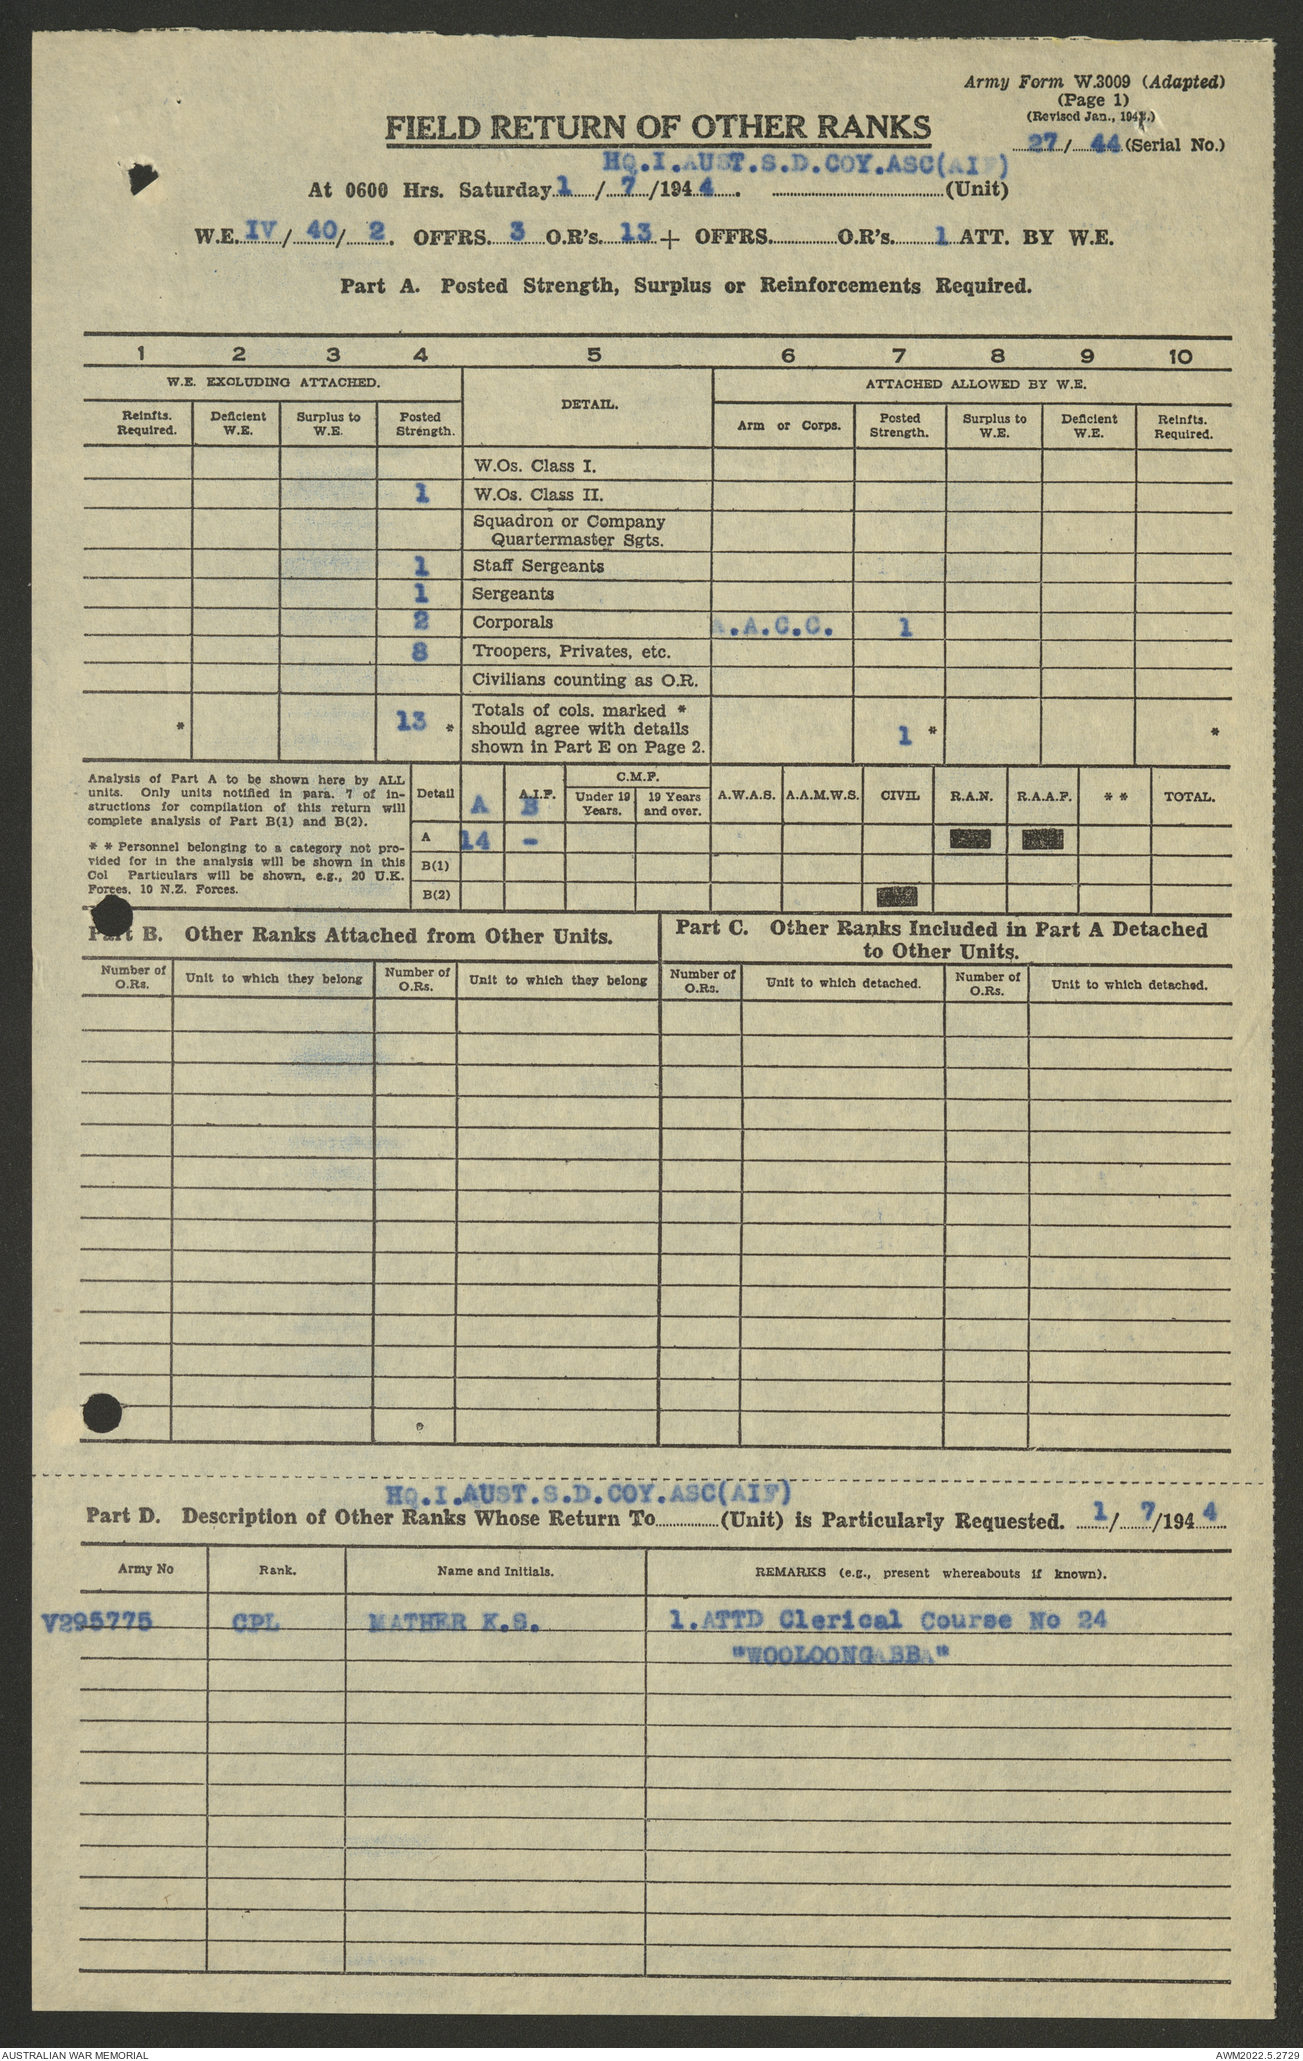 Army Form W.3009 (Adapted)
(Page 1)
(Revised Jan., 194 .)
27 / 44 (Serial No.)
FIELD RETURN OF OTHER RANKS
HQ.I.AUST.S.D.COY.ASC(AIF)
At 0600 Hrs. Saturday 1 / 7 /1944. (Unit)
W.E. IV / 40 / 2. OFFRS. 3 O.R's. 13 + OFFRS. O.R's. 1 ATT. BY W.E.
Part A. Posted Strength, Surplus or Reinforcements Required.
1 2 3 4 5 6 7 8 9 10
W.E. EXCLUDING ATTACHED. DETAIL. ATTACHED ALLOWED BY W.E.
Reinfts. Required. Deficient W.E. Surplus to W.E. Posted Strength. Arm or Corps. Posted Strength. Surplus to W.E. Deficient W.E. Reinfts. Required.
W.Os. Class I.
1 W.Os. Class II.
Squadron or Company
Quartermaster Sgts.
1 Staff Sergeants
1 Sergeants
2 Corporals A.A.C.C. 1
8 Troopers, Privates, etc.
Civilians counting as O.R.
* 13 * Totals of cols. marked * should agree with details shown in Part E on Page 2. 1 * *
Analysis of Part A to be shown here by ALL
units. Only units notified in para. 7 of in-
structions for compilation of this return will
complete analysis of Part B(1) and B(2).
* * Personnel belonging to a category not pro-
vided for in the analysis will be shown in this
Col Particulars will be shown, e.g., 20 U.K.
Forces, 10 N.Z. Forces.
Detail A A.I.F. B C.M.F. Under 19 Years. 19 Years and over. A.W.A.S. A.A.M.W.S. CIVIL R.A.N. R.A.A.F. * * TOTAL.
A 14 -
B(1)
B(2)
Part B. Other Ranks Attached from Other Units.
Part C. Other Ranks Included in Part A Detached
to Other Units.
Number of O.Rs. Unit to which they belong Number of O.Rs. Unit to which they belong Number of O.Rs. Unit to which detached. Number of O.Rs. Unit to which detached.
HQ.I.AUST.S.D.COY.ASC(AIF)
Part D. Description of Other Ranks Whose Return To (Unit) is Particularly Requested. 1 / 7 /1944
Army No Rank. Name and Initials. REMARKS (e.g., present whereabouts if known).
V295775 CPL MATHER K.S. 1.ATTD Clerical Course No 24
"WOOLOONGABBA"
AUSTRALIAN WAR MEMORIAL AWM2022.5.2729